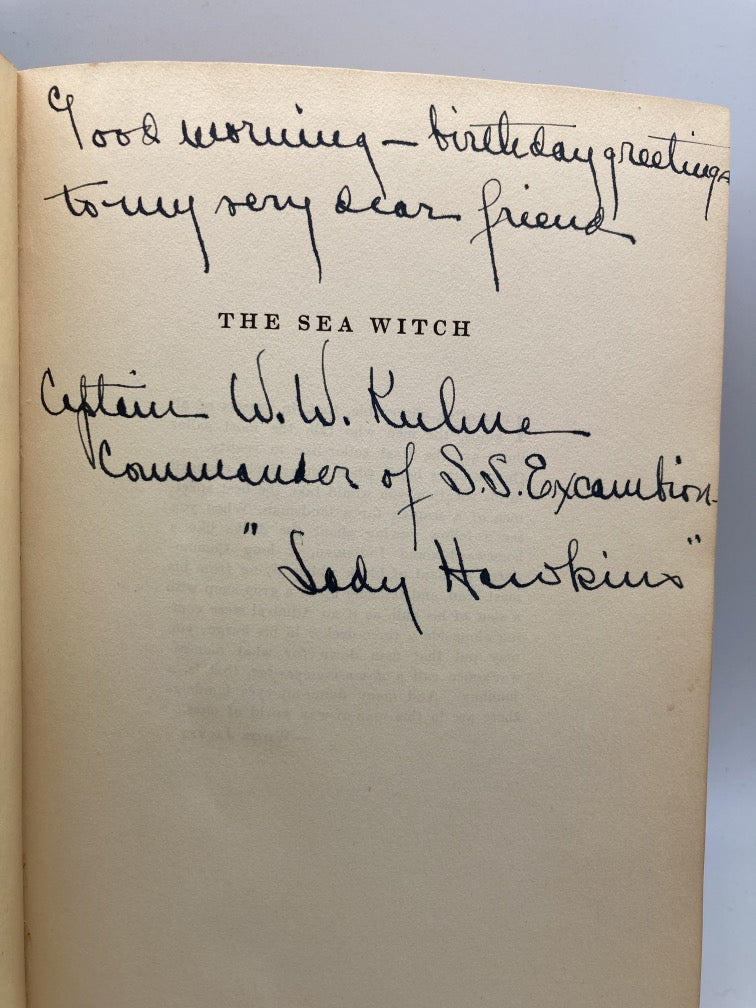 Good morning — birthday greetings
to my very dear friend
THE SEA WITCH
Captain W. W. Kuhne
Commander of S.S. Excambion
"Lady Hawkins"